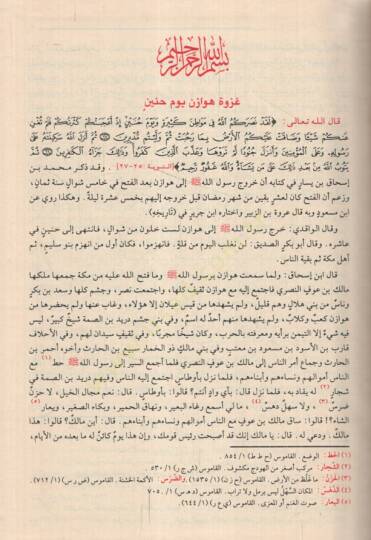 بسم الله الرحمن الرحيم
غزوة هوازن يوم حنين
قال الله تعالى: ﴿لَقَدْ نَصَرَكُمُ اللَّهُ فِي مَوَاطِنَ كَثِيرَةٍ وَيَوْمَ حُنَيْنٍ إِذْ أَعْجَبَتْكُمْ كَثْرَتُكُمْ فَلَمْ تُغْنِ
عَنكُمْ شَيْئًا وَضَاقَتْ عَلَيْكُمُ الْأَرْضُ بِمَا رَحُبَتْ ثُمَّ وَلَّيْتُم مُّدْبِرِينَ ۝ ثُمَّ أَنزَلَ اللَّهُ سَكِينَتَهُ عَلَى
رَسُولِهِ وَعَلَى الْمُؤْمِنِينَ وَأَنزَلَ جُنُودًا لَّمْ تَرَوْهَا وَعَذَّبَ الَّذِينَ كَفَرُوا وَذَٰلِكَ جَزَاءُ الْكَافِرِينَ ۝ ثُمَّ
يَتُوبُ اللَّهُ مِن بَعْدِ ذَٰلِكَ عَلَىٰ مَن يَشَاءُ وَاللَّهُ غَفُورٌ رَّحِيمٌ﴾ [التوبة: ٢٥-٢٧]. وقد ذكر محمد بن
إسحاق بن يسار في كتابه أن خروج رسول الله ﷺ إلى هوازن بعد الفتح في خامس شوال سنة ثمان،
وزعم أن الفتح كان لعشرٍ بقين من شهر رمضان قبل خروجه إليهم خمس عشرة ليلةً. وهكذا روي عن
ابن مسعود وبه قال عروة بن الزبير واختاره ابن جرير في (تاريخه).
وقال الواقدي: خرج رسول الله ﷺ إلى هوازن لست خلون من شوال، فانتهى إلى حنين في
عاشره. وقال أبو بكر الصديق: لن نغلب اليوم من قلةٍ. فانهزموا، فكان أول من انهزم بنو سليم، ثم
أهل مكة ثم بقية الناس.
قال ابن إسحاق: ولما سمعت هوازن برسول الله ﷺ وما فتح الله عليه من مكة جمعها ملكها
مالك بن عوف النصري فاجتمع إليه مع هوازن ثقيفٌ كلها، واجتمعت نصر، وجشم كلها وسعد بن بكرٍ
وناسٌ من بني هلالٍ وهم قليلٌ، ولم يشهدها من قيس عيلان إلا هؤلاء، وغاب عنها ولم يحضرها من
هوازن كعبٌ وكلابٌ، ولم يشهدها منهم أحدٌ له اسم، وفي بني جشم دريد بن الصمة شيخٌ كبيرٌ، ليس
فيه شيءٌ إلا التيمن برأيه ومعرفته بالحرب، وكان شيخًا مجربًا، وفي ثقيفٍ سيدان لهم، وفي الأحلاف
قارب بن الأسود بن مسعود بن معتب وفي بني مالكٍ ذو الخمار سبيع بن الحارث وأخوه أحمر بن
الحارث وجماع أمر الناس إلى مالك بن عوفٍ النصري فلما أجمع السير إلى رسول الله ﷺ حط (١) مع
الناس أموالهم ونساءهم وأبناءهم، فلما نزل بأوطاسٍ اجتمع إليه الناس وفيهم دريد بن الصمة في
شجارٍ (٢) له يقاد به، فلما نزل قال: بأي وادٍ أنتم؟ قالوا: بأوطاس. قال: نعم مجال الخيل، لا حزنٌ
ضرسٌ (٣)، ولا سهلٌ دهسٌ (٤)، ما لي أسمع رغاء البعير، ونهاق الحمير، وبكاء الصغير، ويعار (٥)
الشاء؟! قالوا: ساق مالك بن عوف مع الناس أموالهم ونساءهم وأبناءهم. قال: أين مالكٌ؟ قالوا: هذا
مالكٌ. ودعي له. قال: يا مالك إنك قد أصبحت رئيس قومك، وإن هذا يومٌ كائنٌ له ما بعده من الأيام،
(١) الحط: الوضع. القاموس (ح ط ط) ٨٥٤/١.
(٢) الشجار: مركب أصغر من الهودج مكشوف. القاموس (ش ج ر) ٥٣٠/١.
(٣) الحزن: ما غلظ من الأرض. القاموس (ح ز ن) (١٥٣٥/١). والضرس: الأكمة الخشنة. القاموس (ض ر س) (٧١٢/١).
(٤) الدهس: المكان السهل ليس برمل ولا تراب. القاموس (د ه س) ٧٠٥/١.
(٥) اليعار: صوت الغنم أو المعزى. القاموس (ي ع ر) (٦٤٤/١).